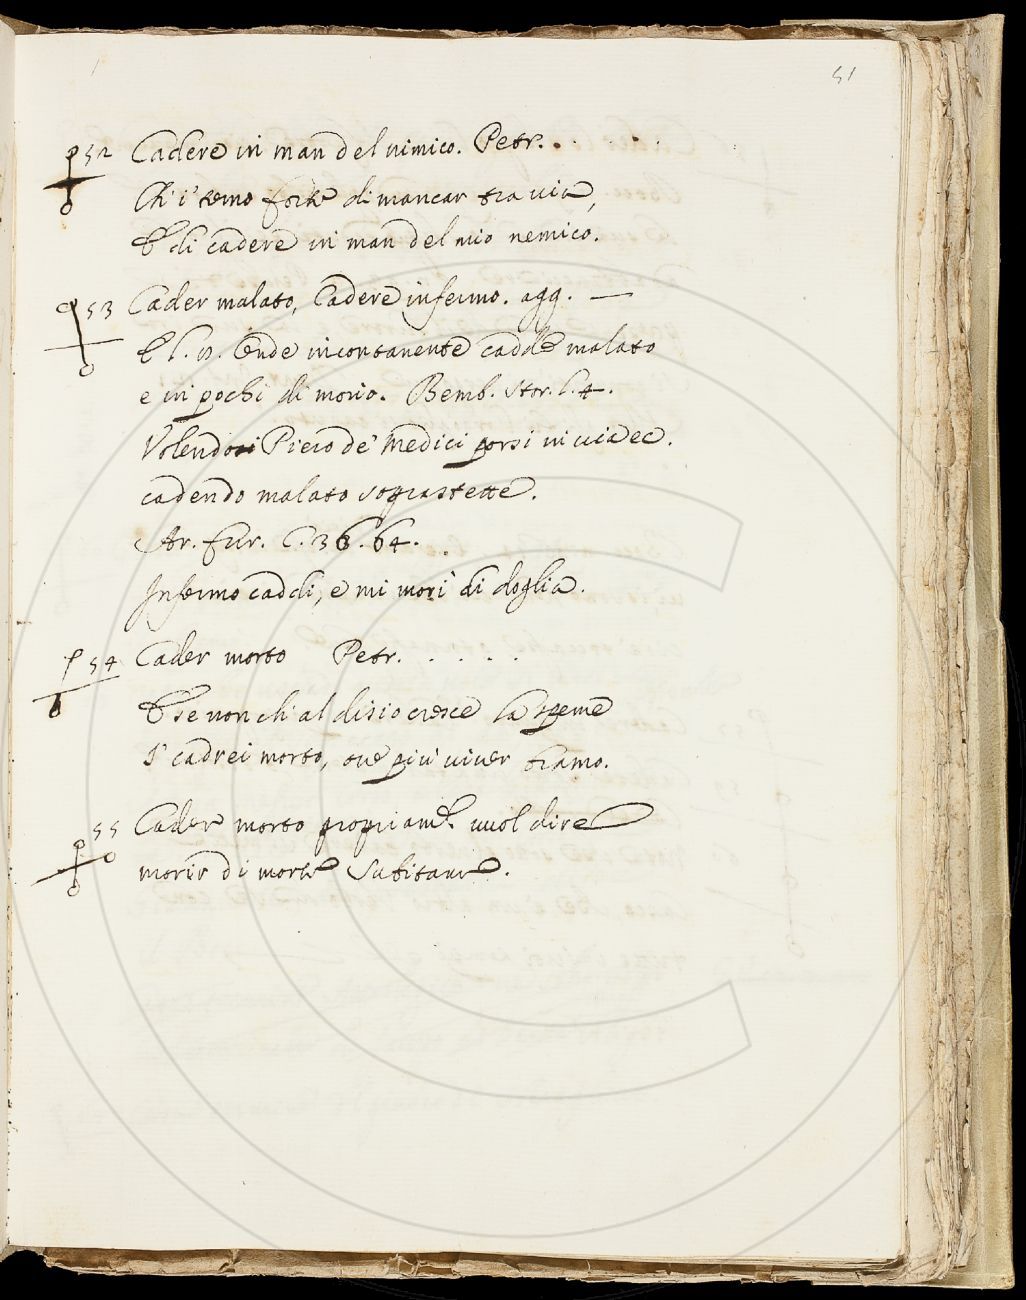 51
52 Cadere in man del nimico. Petr. . . . .
Ch'i' temo forte di mancar tra via,
E di cadere in man del mio nemico.
53 Cader malato, Cadere infermo. agg. —
Onde incontanente cadde malato
e in pochi dì morìo. Bemb. Stor. l. 4.
Volendo Piero de' Medici porsi in via ec.
cadendo malato soprastette.
Ar. Fur. C. 36. 64.
Infermo caddi, e mi morì di doglia.
54 Cader morto Petr. . . . . .
E se non ch'al disio cresce la speme
I' cadrei morto, ove più viver bramo.
55 Cader morto propriamte. vuol dire
morir di morte subitana.